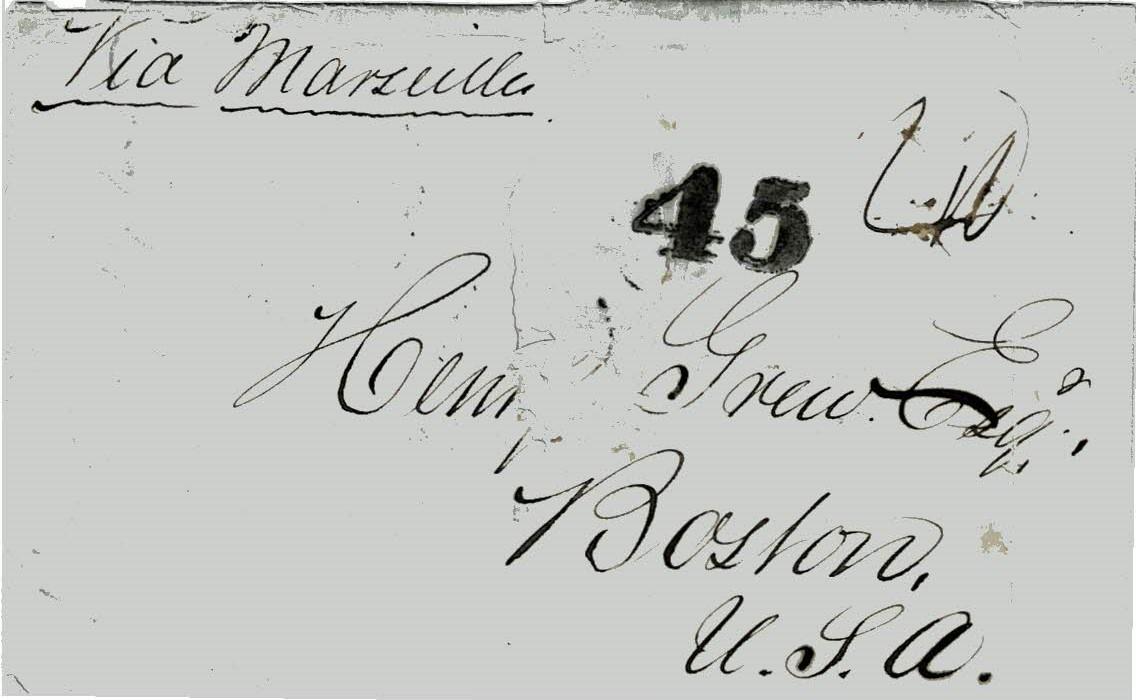 Via Marseilles.
45
Henry Grew. Esqr.,
Boston,
U.S.A.